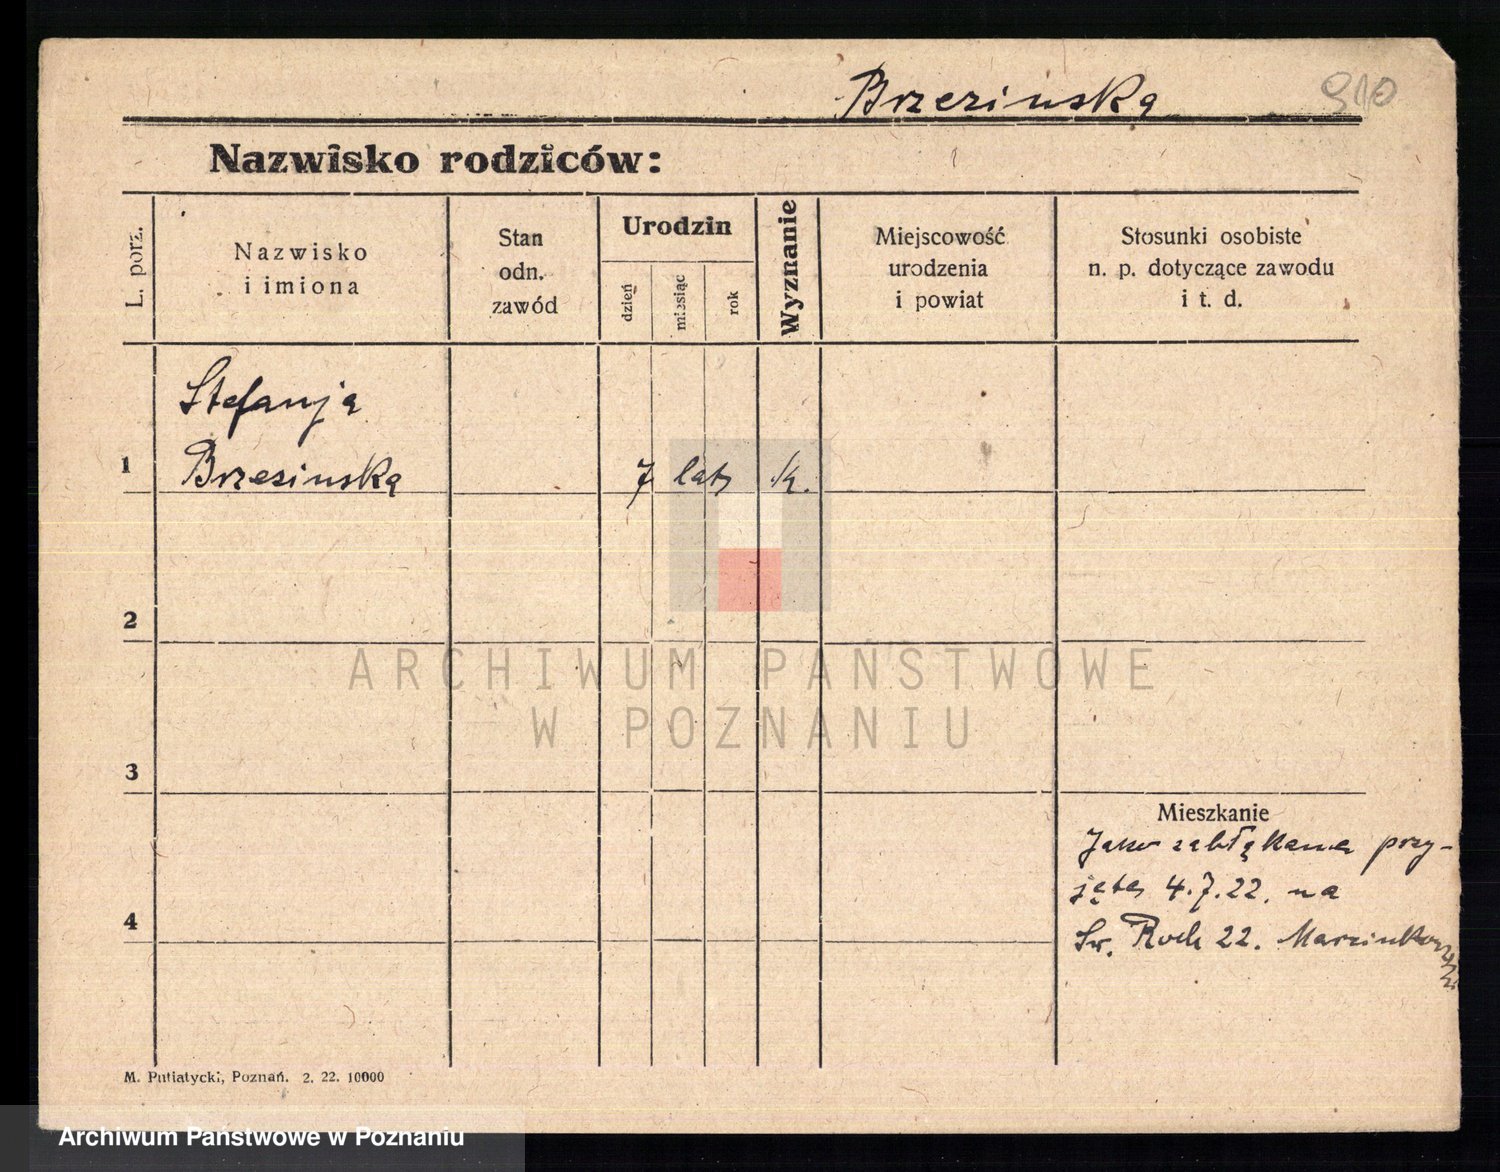 Brzezinska 910
Nazwisko rodziców:
L. porz.
Nazwisko
i imiona
Stan
odn.
zawód
Urodzin
dzień
miesiąc
rok
Wyznanie
Miejscowość
urodzenia
i powiat
Stosunki osobiste
n. p. dotyczące zawodu
i t. d.
Stefanja
1 Brzesinska 7 lat k.
2
ARCHIWUM PAŃSTWOWE
W POZNANIU
3
Mieszkanie
Jako zabłąkana przy-
jęta 4.7.22. na
4
Św. Roch 22. Marcinkowski
M. Putiatycki, Poznań. 2. 22. 10000
Archiwum Państwowe w Poznaniu